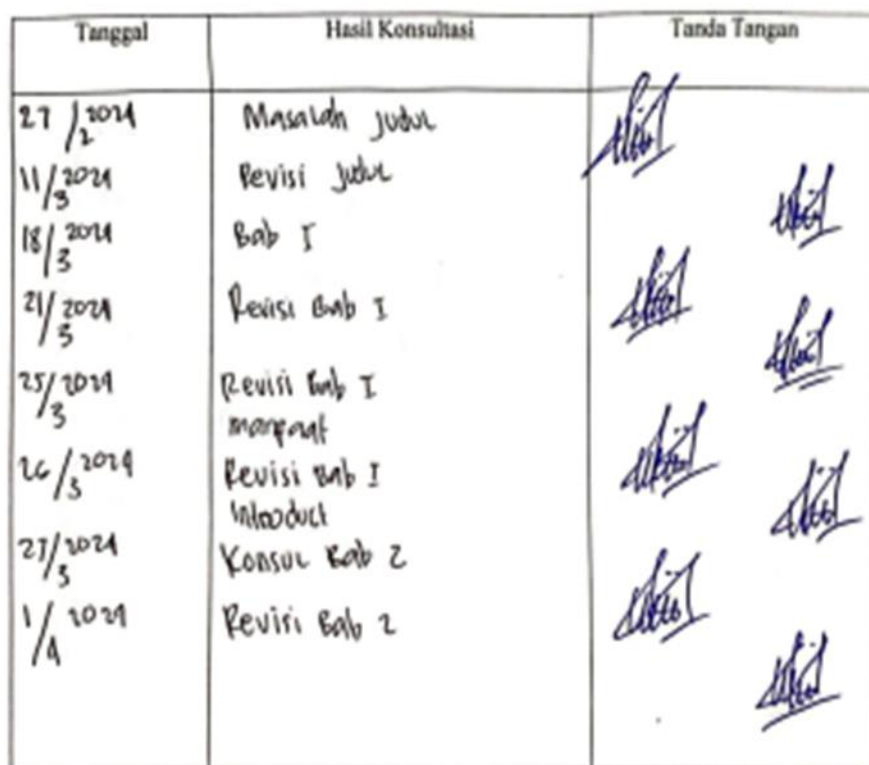 Tanggal Hasil Konsultasi Tanda Tangan
27/2 2024 Masalah Judul
11/3 2024 Revisi Judul
18/3 2024 Bab I
21/3 2024 Revisi Bab I
25/3 2024 Revisi Bab I
manfaat
26/3 2024 Revisi Bab I
Introduct
27/3 2024 Konsul Bab 2
1/4 2024 Revisi Bab 2